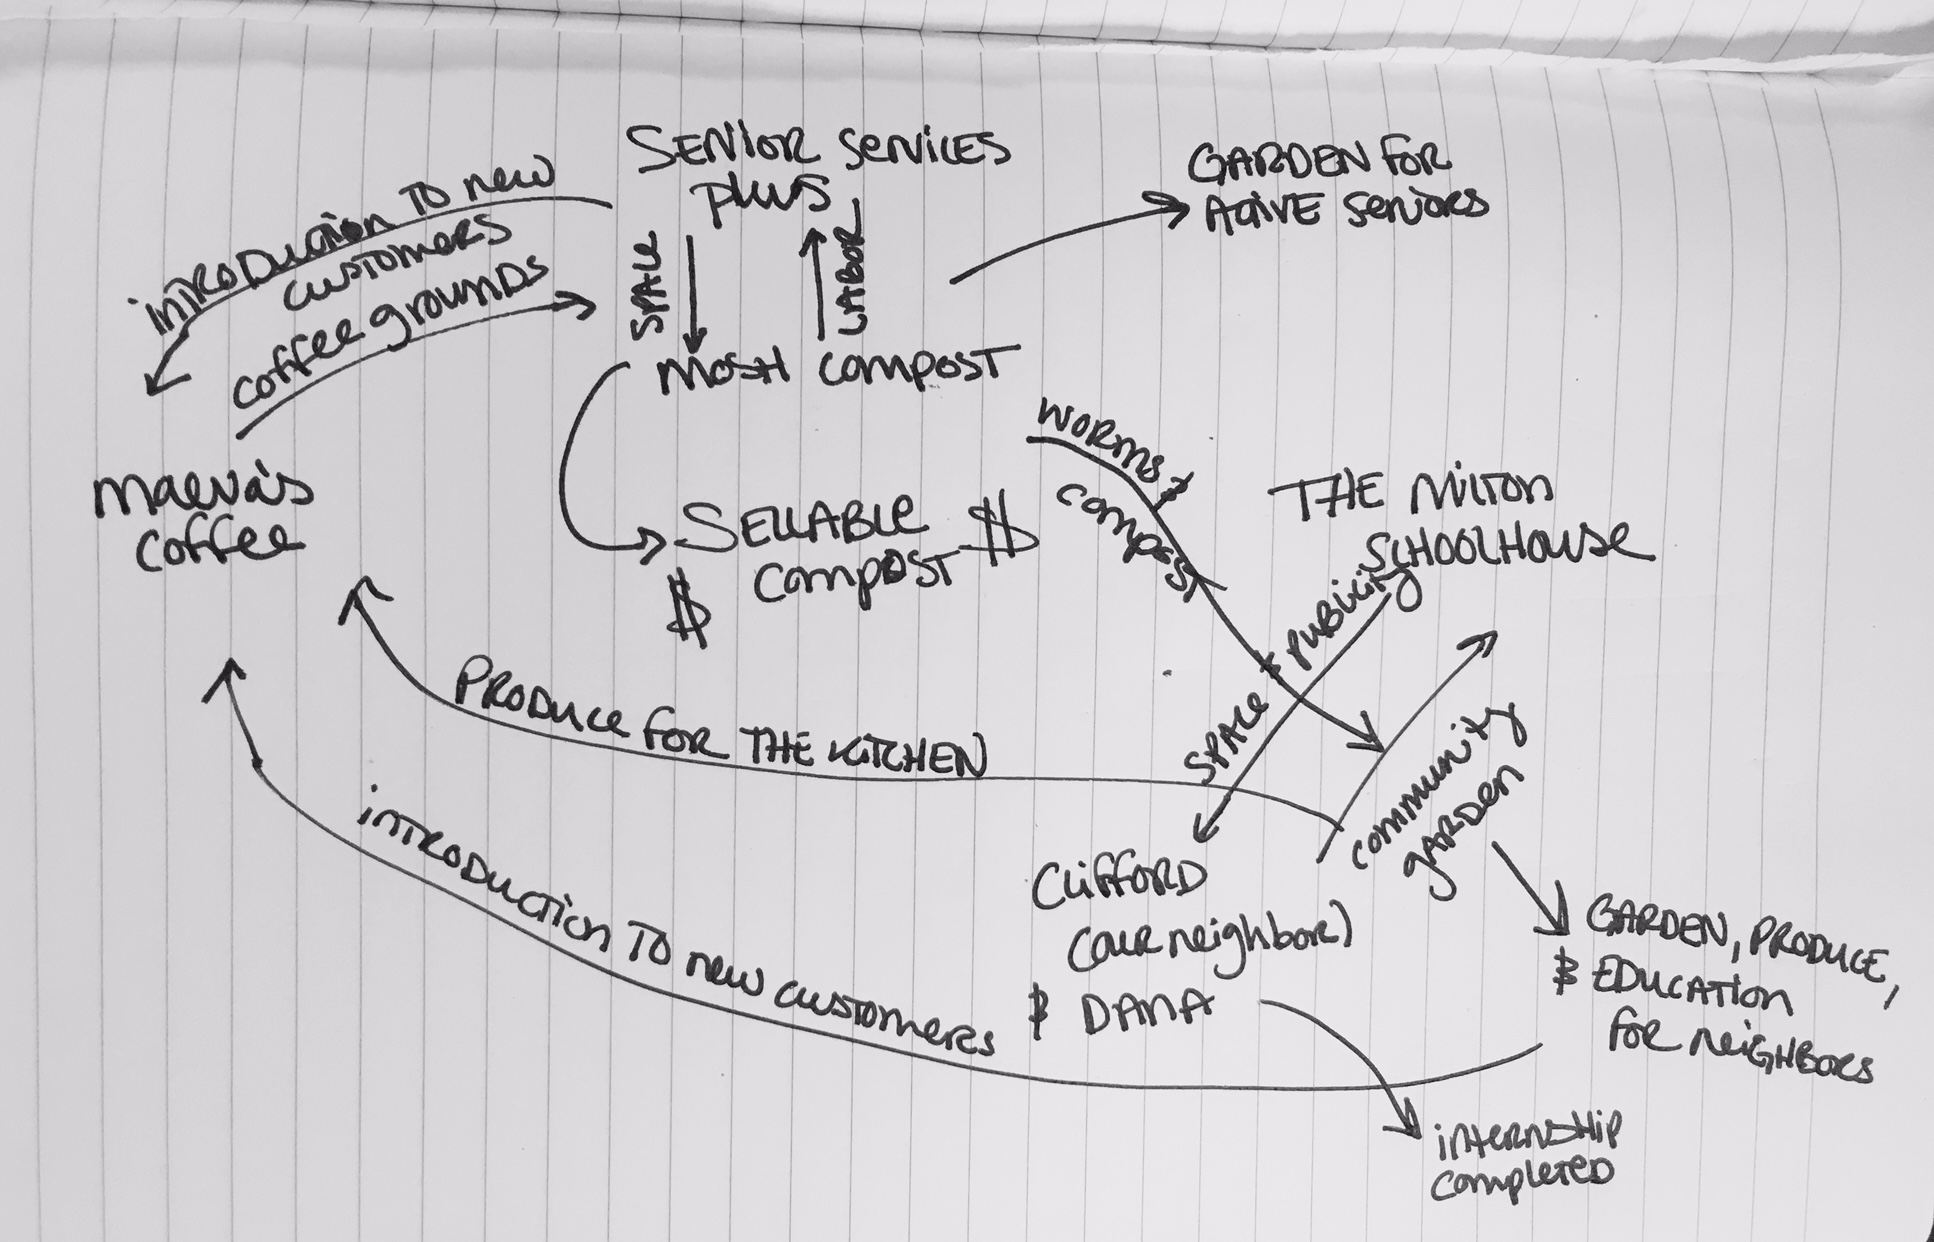 SENIOR SERVICES
plus
GARDEN FOR
ACTIVE SENIORS
INTRODUCTION TO new
CUSTOMERS
coffee grounds
SPACE
LABOR
MOSH COMPOST
WORMS +
COMPOST
maeva's
coffee
SELLABLE $
COMPOST
$
THE MILTON
SCHOOLHOUSE
SPACE + PUBLICITY
PRODUCE FOR THE KITCHEN
community
gARDEN
INTRODUCTION TO new customers
CLIFFORD
(OUR neighbor)
& DANA
GARDEN, PRODUCE,
& EDUCATION
FOR NEIGHBORS
INTERNSHIP
COMPLETED